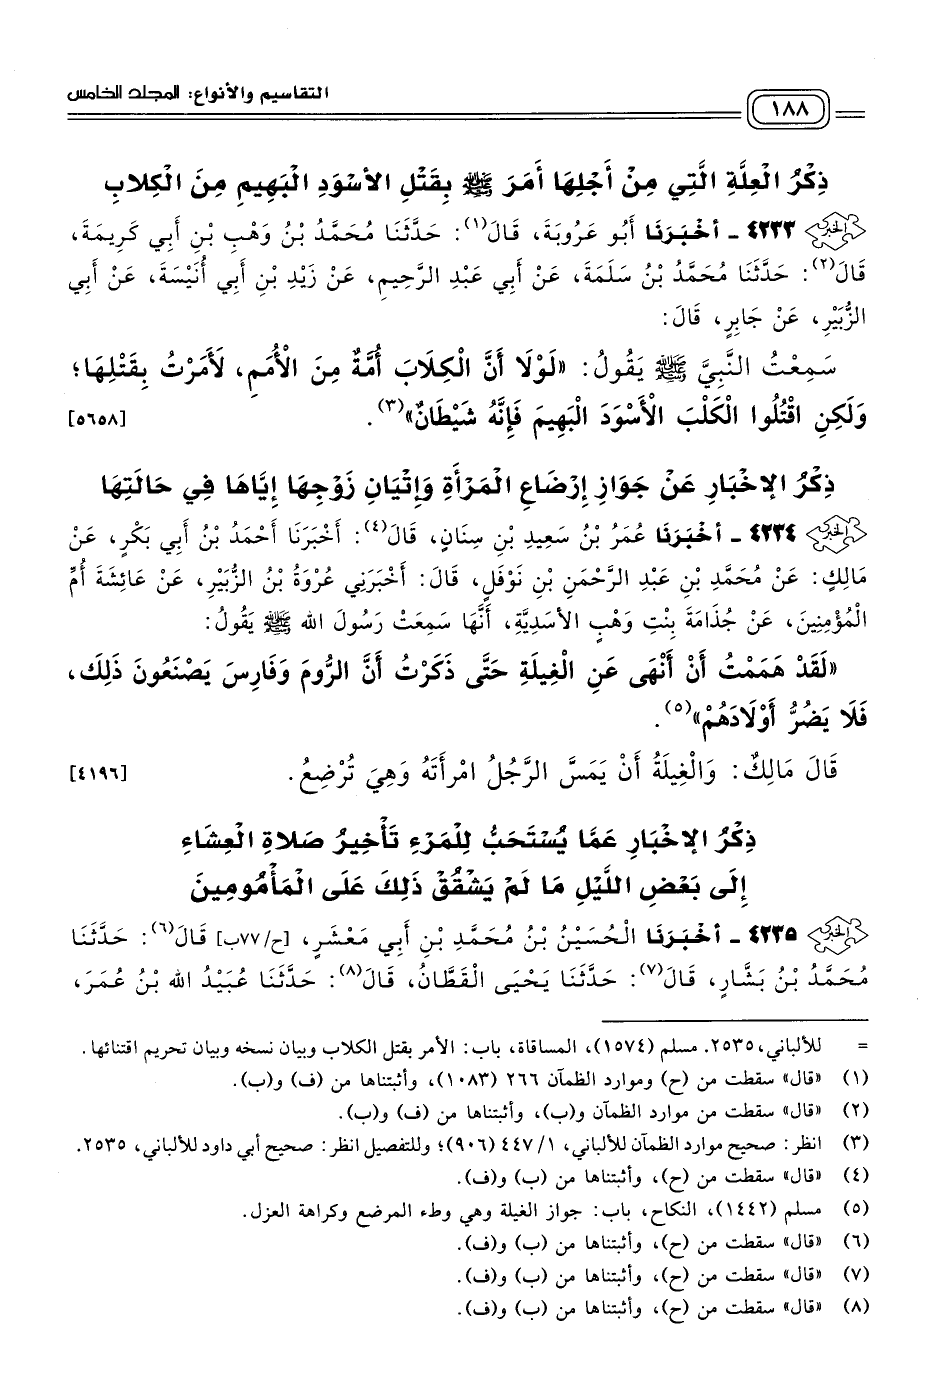 التقاسيم والأنواع: المجلد الخامس
١٨٨
ذِكْرُ الْعِلَّةِ الَّتِي مِنْ أَجْلِهَا أَمَرَ ﷺ بِقَتْلِ الأَسْوَدِ الْبَهِيمِ مِنَ الْكِلابِ
٤٢٣٣ - أَخْبَرَنَا أَبُو عَرُوبَةَ، قَالَ(١): حَدَّثَنَا مُحَمَّدُ بْنُ وَهْبِ بْنِ أَبِي كَرِيمَةَ،
قَالَ(٢): حَدَّثَنَا مُحَمَّدُ بْنُ سَلَمَةَ، عَنْ أَبِي عَبْدِ الرَّحِيمِ، عَنْ زَيْدِ بْنِ أَبِي أُنَيْسَةَ، عَنْ أَبِي
الزُّبَيْرِ، عَنْ جَابِرٍ، قَالَ:
سَمِعْتُ النَّبِيَّ ﷺ يَقُولُ: «لَوْلَا أَنَّ الْكِلَابَ أُمَّةٌ مِنَ الْأُمَمِ، لَأَمَرْتُ بِقَتْلِهَا؛
وَلَكِنِ اقْتُلُوا الْكَلْبَ الْأَسْوَدَ الْبَهِيمَ فَإِنَّهُ شَيْطَانٌ»(٣). [٥٦٥٨]
ذِكْرُ الإِخْبَارِ عَنْ جَوَازِ إِرْضَاعِ الْمَرْأَةِ وَإِتْيَانِ زَوْجِهَا إِيَّاهَا فِي حَالَتِهَا
٤٢٣٤ - أَخْبَرَنَا عُمَرُ بْنُ سَعِيدِ بْنِ سِنَانٍ، قَالَ(٤): أَخْبَرَنَا أَحْمَدُ بْنُ أَبِي بَكْرٍ، عَنْ
مَالِكٍ: عَنْ مُحَمَّدِ بْنِ عَبْدِ الرَّحْمَنِ بْنِ نَوْفَلٍ، قَالَ: أَخْبَرَنِي عُرْوَةُ بْنُ الزُّبَيْرِ، عَنْ عَائِشَةَ أُمِّ
الْمُؤْمِنِينَ، عَنْ جُذَامَةَ بِنْتِ وَهْبٍ الأَسَدِيَّةِ، أَنَّهَا سَمِعَتْ رَسُولَ الله ﷺ يَقُولُ:
«لَقَدْ هَمَمْتُ أَنْ أَنْهَى عَنِ الْغِيلَةِ حَتَّى ذَكَرْتُ أَنَّ الرُّومَ وَفَارِسَ يَصْنَعُونَ ذَلِكَ،
فَلَا يَضُرُّ أَوْلَادَهُمْ»(٥).
قَالَ مَالِكٌ: وَالْغِيلَةُ أَنْ يَمَسَّ الرَّجُلُ امْرأَتَهُ وَهِيَ تُرْضِعُ. [٤١٩٦]
ذِكْرُ الإِخْبَارِ عَمَّا يُسْتَحَبُّ لِلْمَرْءِ تَأْخِيرُ صَلاةِ الْعِشَاءِ
إِلَى بَعْضِ اللَّيْلِ مَا لَمْ يَشْقُقْ ذَلِكَ عَلَى الْمَأْمُومِينَ
٤٢٣٥ - أَخْبَرَنَا الْحُسَيْنُ بْنُ مُحَمَّدِ بْنِ أَبِي مَعْشَرٍ، [ح/٧٧ب] قَالَ(٦): حَدَّثَنَا
مُحَمَّدُ بْنُ بَشَّارٍ، قَالَ(٧): حَدَّثَنَا يَحْيَى الْقَطَّانُ، قَالَ(٨): حَدَّثَنَا عُبَيْدُ الله بْنُ عُمَرَ،
= للألباني، ٢٥٣٥. مسلم (١٥٧٤)، المساقاة، باب: الأمر بقتل الكلاب وبيان نسخه وبيان تحريم اقتنائها.
(١) «قال» سقطت من (ح) وموارد الظمآن ٢٦٦ (١٠٨٣)، وأثبتناها من (ف) و(ب).
(٢) «قال» سقطت من موارد الظمآن و(ب)، وأثبتناها من (ف) و(ب).
(٣) انظر: صحيح موارد الظمآن للألباني، ١/ ٤٤٧ (٩٠٦)؛ وللتفصيل انظر: صحيح أبي داود للألباني، ٢٥٣٥.
(٤) «قال» سقطت من (ح)، وأثبتناها من (ب) و(ف).
(٥) مسلم (١٤٤٢)، النكاح، باب: جواز الغيلة وهي وطء المرضع وكراهة العزل.
(٦) «قال» سقطت من (ح)، وأثبتناها من (ب) و(ف).
(٧) «قال» سقطت من (ح)، وأثبتناها من (ب) و(ف).
(٨) «قال» سقطت من (ح)، وأثبتناها من (ب) و(ف).